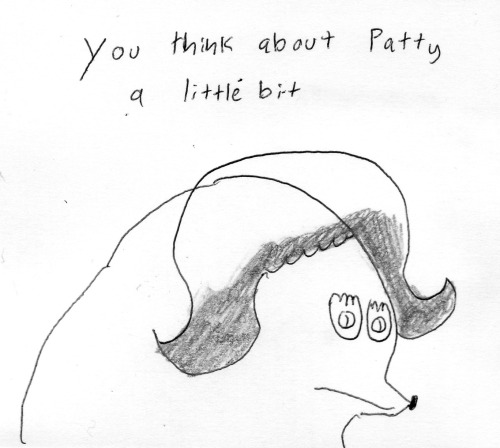 You think about Patty
a little bit